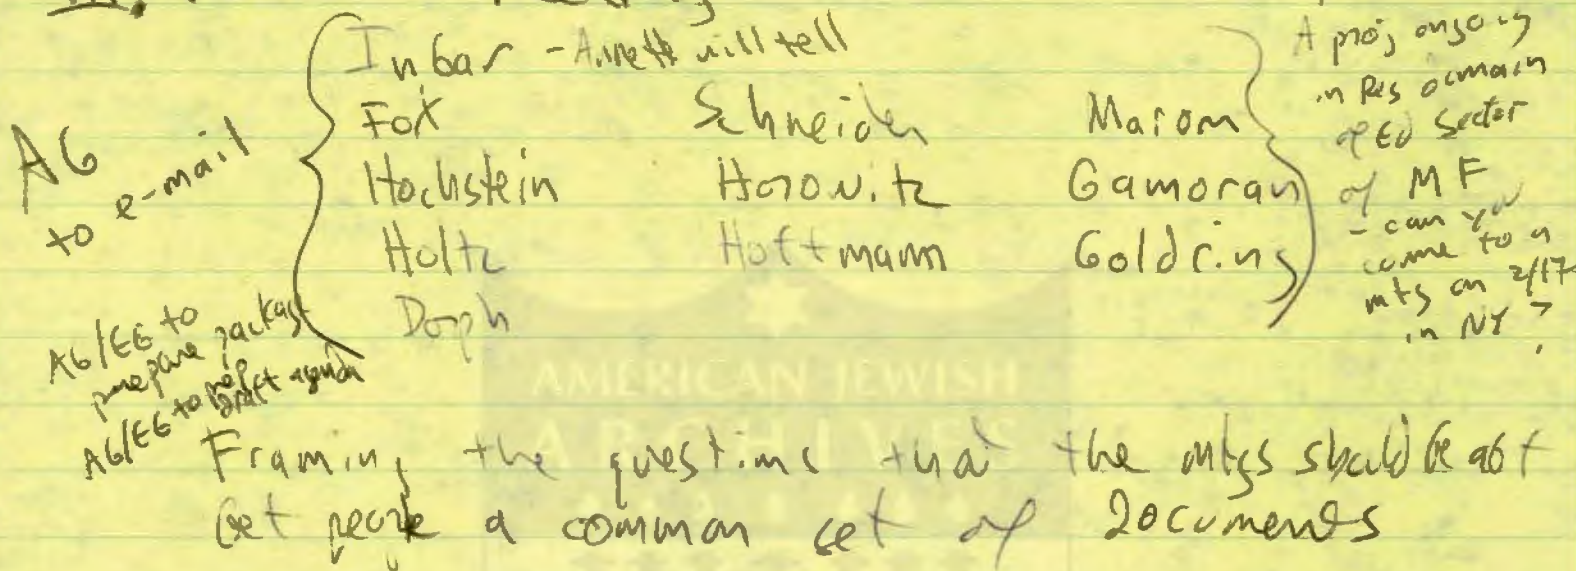 III.
AG
to e-mail
Inbar - Annette will tell
Fox Schneider Marom
Hochstein Horowitz Gamoran
Holtz Hoffmann Goldring
Dorph
A proj ongoing
in Res domain
of Ed Sector
of MF
- can you
come to a
mtg on 2/17
in NY?
AG/EG to
prepare package
AG/EG to prep
draft agenda
AMERICAN JEWISH
ARCHIVES
Framing the questions that the mtgs should be abt
Get people a common set of documents